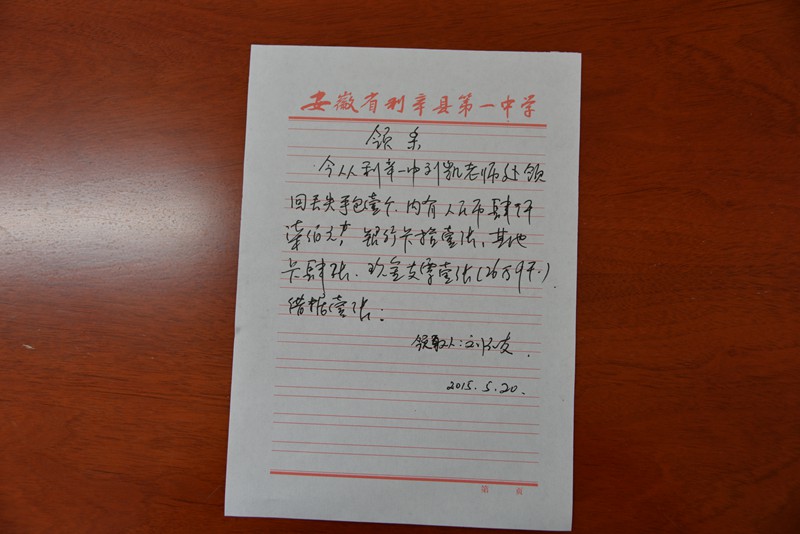 安徽省利辛县第一中学
领条
今从利辛一中刘凯老师处领
回丢失手包壹个.内有人民币肆仟
柒佰元, 银行卡拾壹张、其他
卡肆张.现金支票壹张(26万9千.)
借据壹张;
领取人:刘
2015.5.20.
第 页